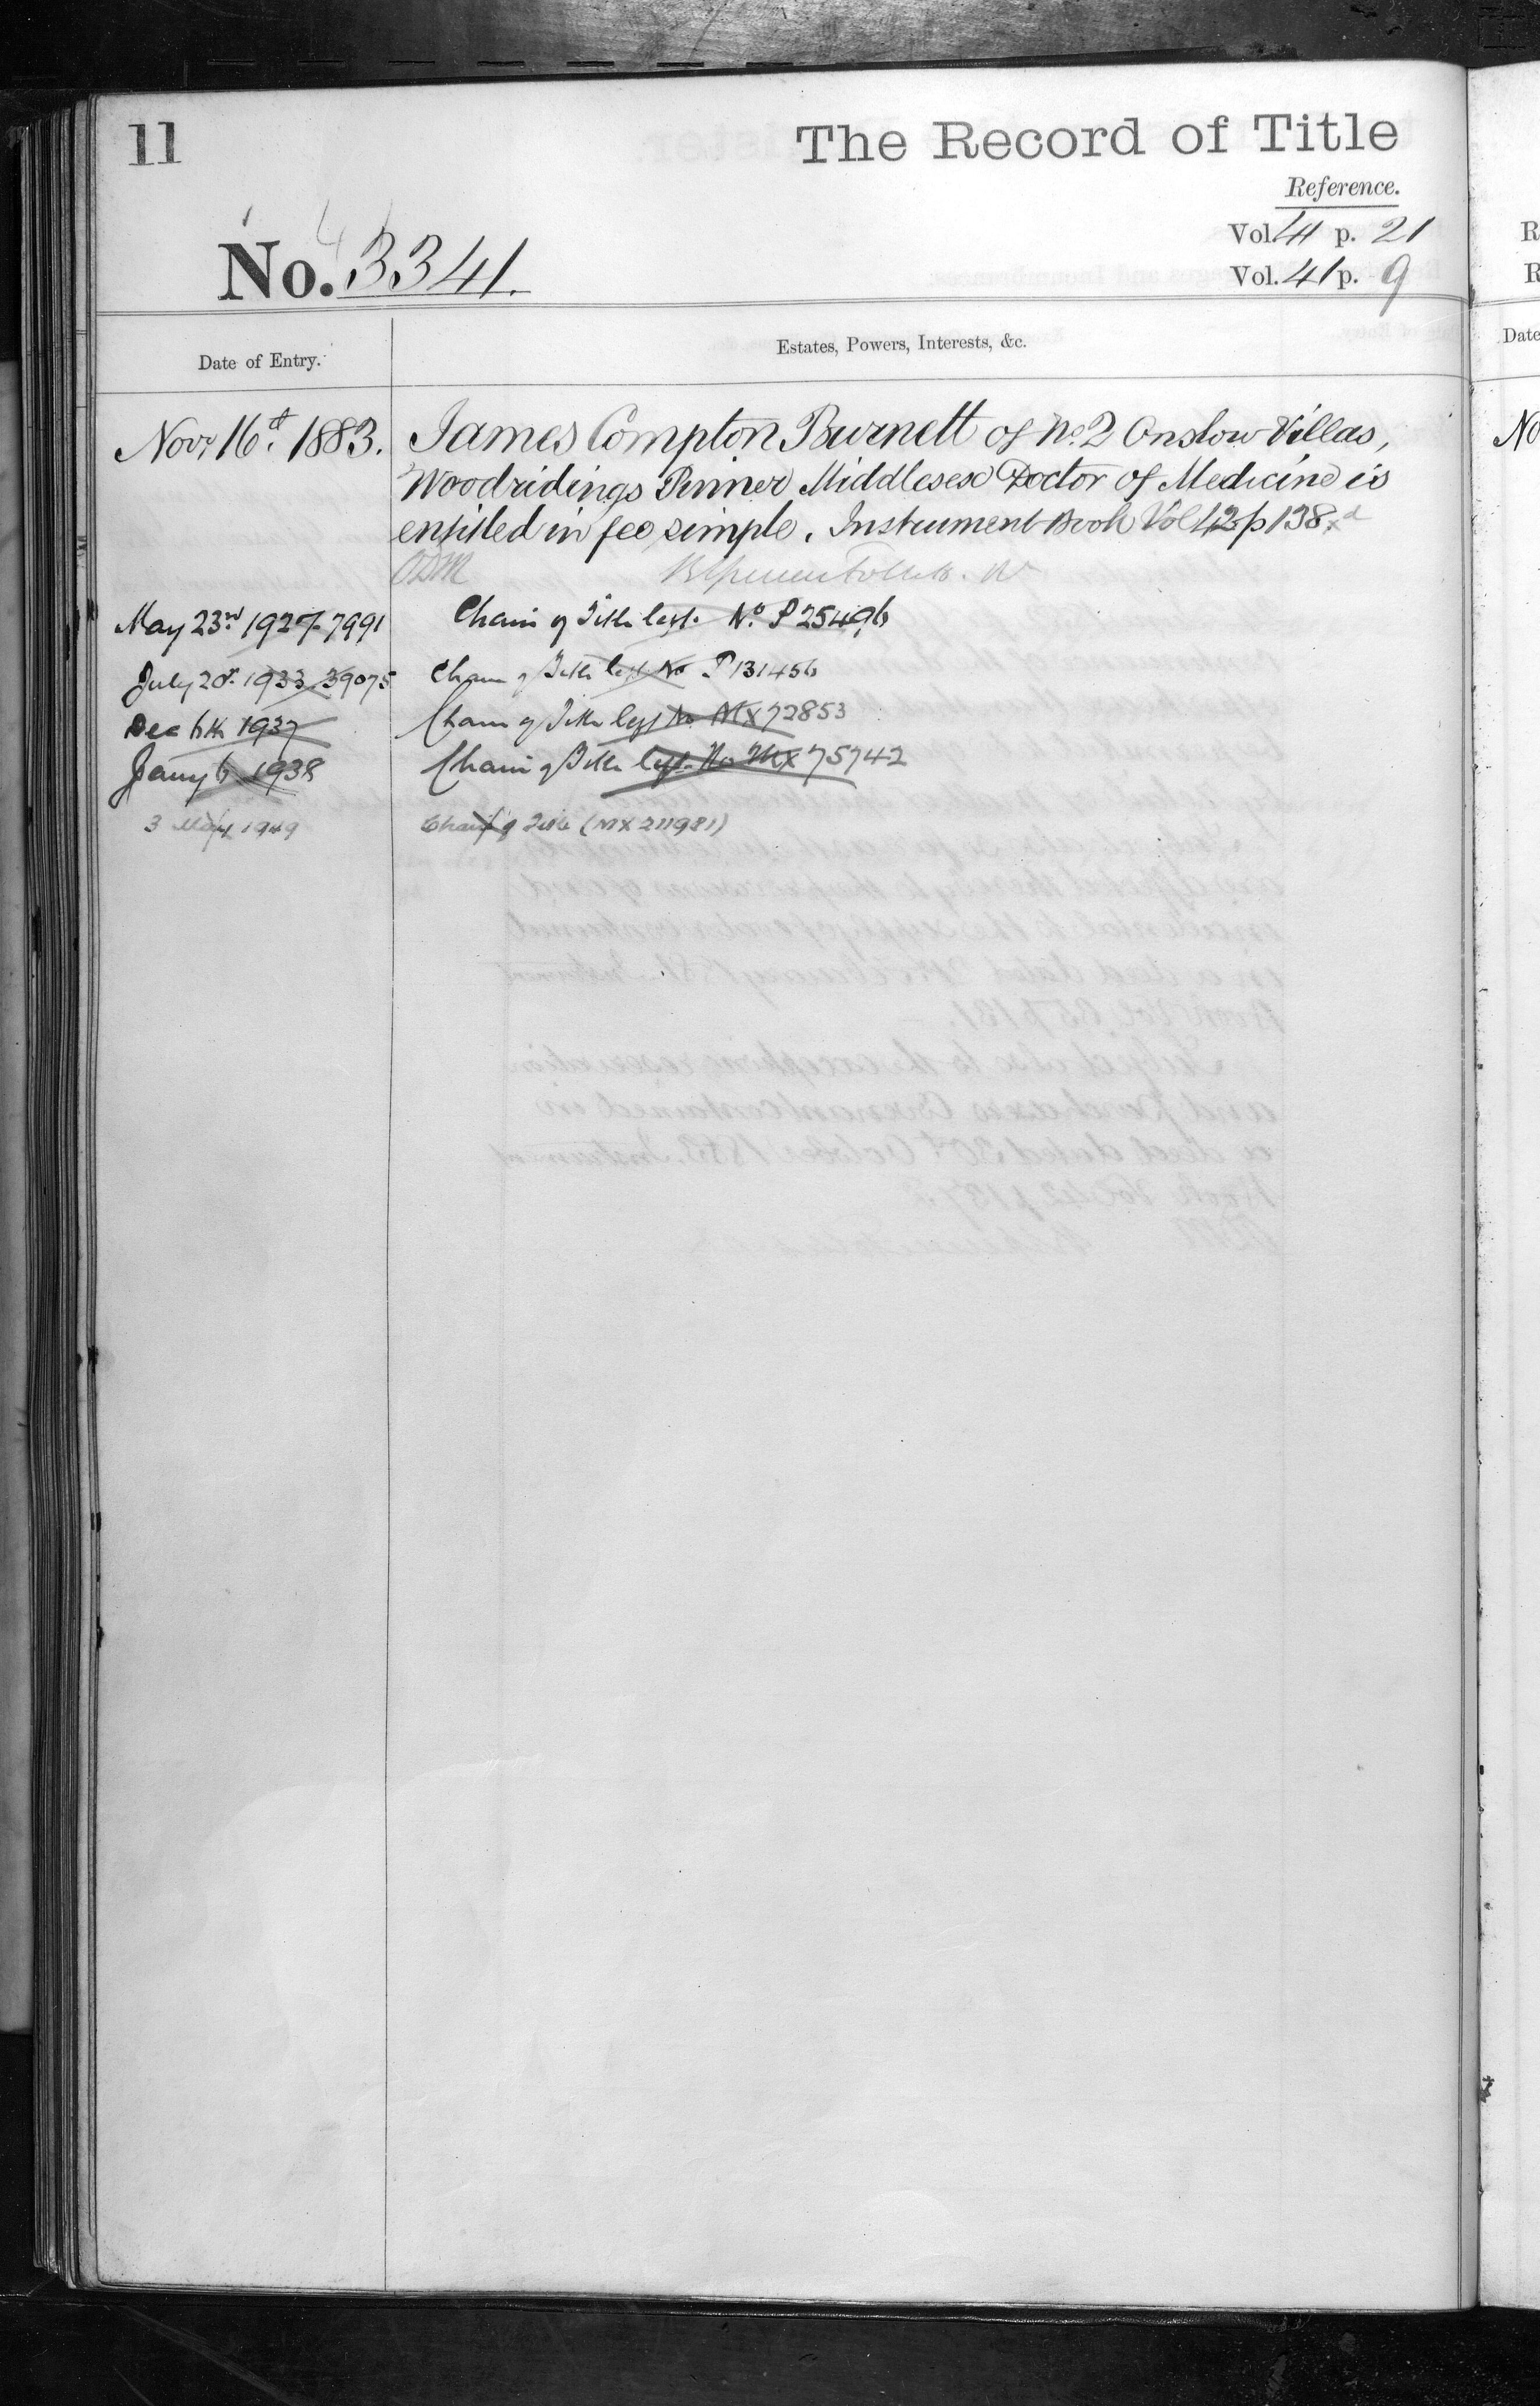 11
The Record of Title
Reference.
No. 3341.
Vol. 41 p. 21
Vol. 41 p. 9
Date of Entry.
Estates, Powers, Interests, &c.
Novr 16th 1883.
James Compton Burnett of No. 2 Onslow Villas,
Woodridings Pinner Middlesex Doctor of Medicine is
entitled in fee simple. Instrument Book Vol 42 p 138.
ODM
May 23rd 1927 7991
Chain of Title legt. No. P 25496
July 20th 1933 39075
Chain of Title legt No P 131456
Dec 6th 1937
Chain of Title legt No MX 72853
Jany 6 1938
Chain of Title legt. No MX 75742
3 May 1949
Chain of Title (MX 211981)
R
R
Date
No